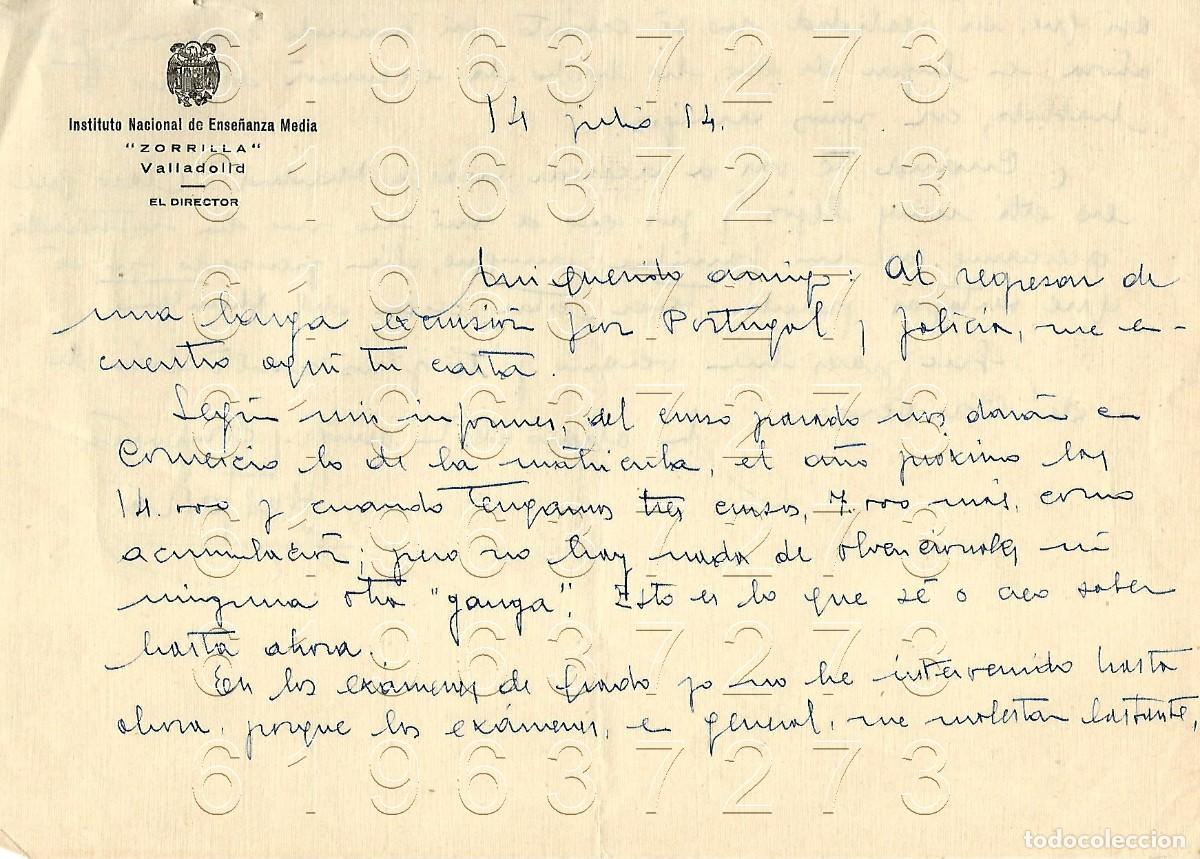 Instituto Nacional de Enseñanza Media
"ZORRILLA"
Valladolid
EL DIRECTOR
14 julio 14.
Mi querido amigo: Al regresar de
una larga excursión por Portugal y Galicia, me en-
cuentro aquí tu carta.
Según mis informes, del curso pasado nos darán en
Comercio lo de la matrícula, el año próximo las
14.000 y cuando tengamos tres cursos, 7.000 más, como
acumulación; pero no hay nada de ni
ninguna otra "ganga". Esto es lo que sé o creo saber
hasta ahora.
En los exámenes de grado yo no he intervenido hasta
ahora, porque los exámenes, en general, me molestan bastante,
619637273
619637273
619637273
619637273
619637273
619637273
619637273
619637273
619637273
todocoleccion